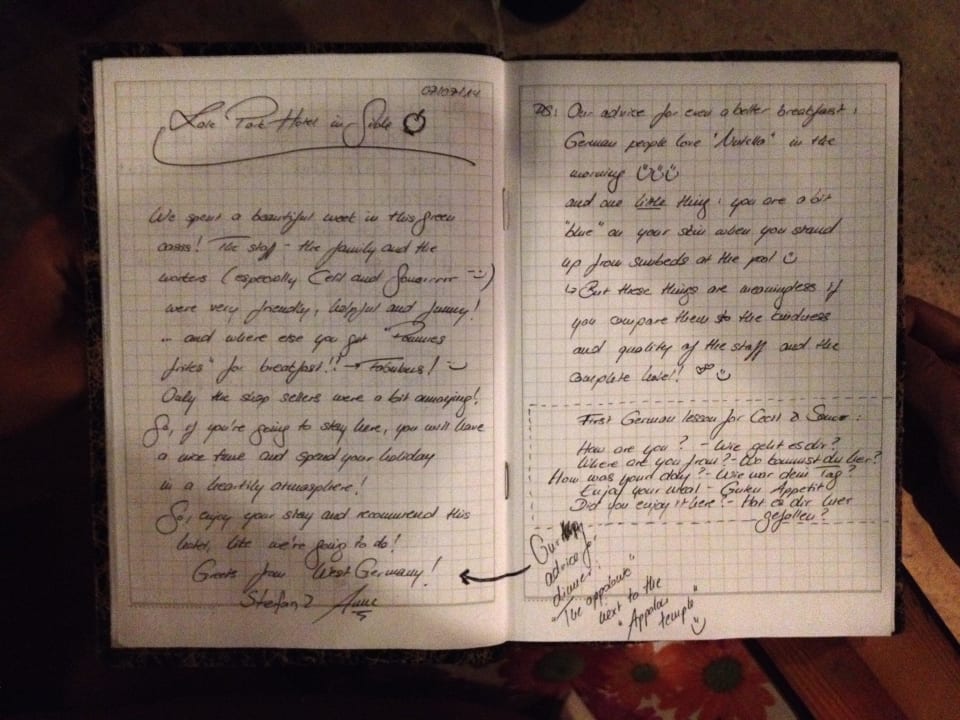 07/07/14
Lale Park Hotel in Side
We spent a beautiful week in this green
oasis! The staff - the family and the
workers (especially Cecil and
were very friendly, helpful and funny!
... and where else you get "Pommes
frites" for breakfast!! → Fabulous!
Only the shop sellers were a bit annoying!
So, if you're going to stay here, you will have
a nice time and spend your holiday
in a heartily atmosphere!
So, enjoy your stay and recommend this
hotel, like we're going to do!
Greets from West Germany!
Stefan & Anne
PS: Our advice for even a better breakfast:
German people love "Nutella" in the
morning
and one little thing: you are a bit
"blue" on your skin when you stand
up from sunbeds at the pool
↳ But these things are meaningless if
you compare them to the kindness
and quality of the staff and the
complete hotel!
First German lesson for Cecil &
How are you? - Wie geht es dir?
Where are you from? - Wo kommst du her?
How was your day? - Wie war dein Tag?
Enjoy your meal - Guten Appetit
Did you enjoy it here? - Hat es dir hier
gefallen?
Our
advice for
dinner:
"The appolows"
next to the
"Appolon
temple"